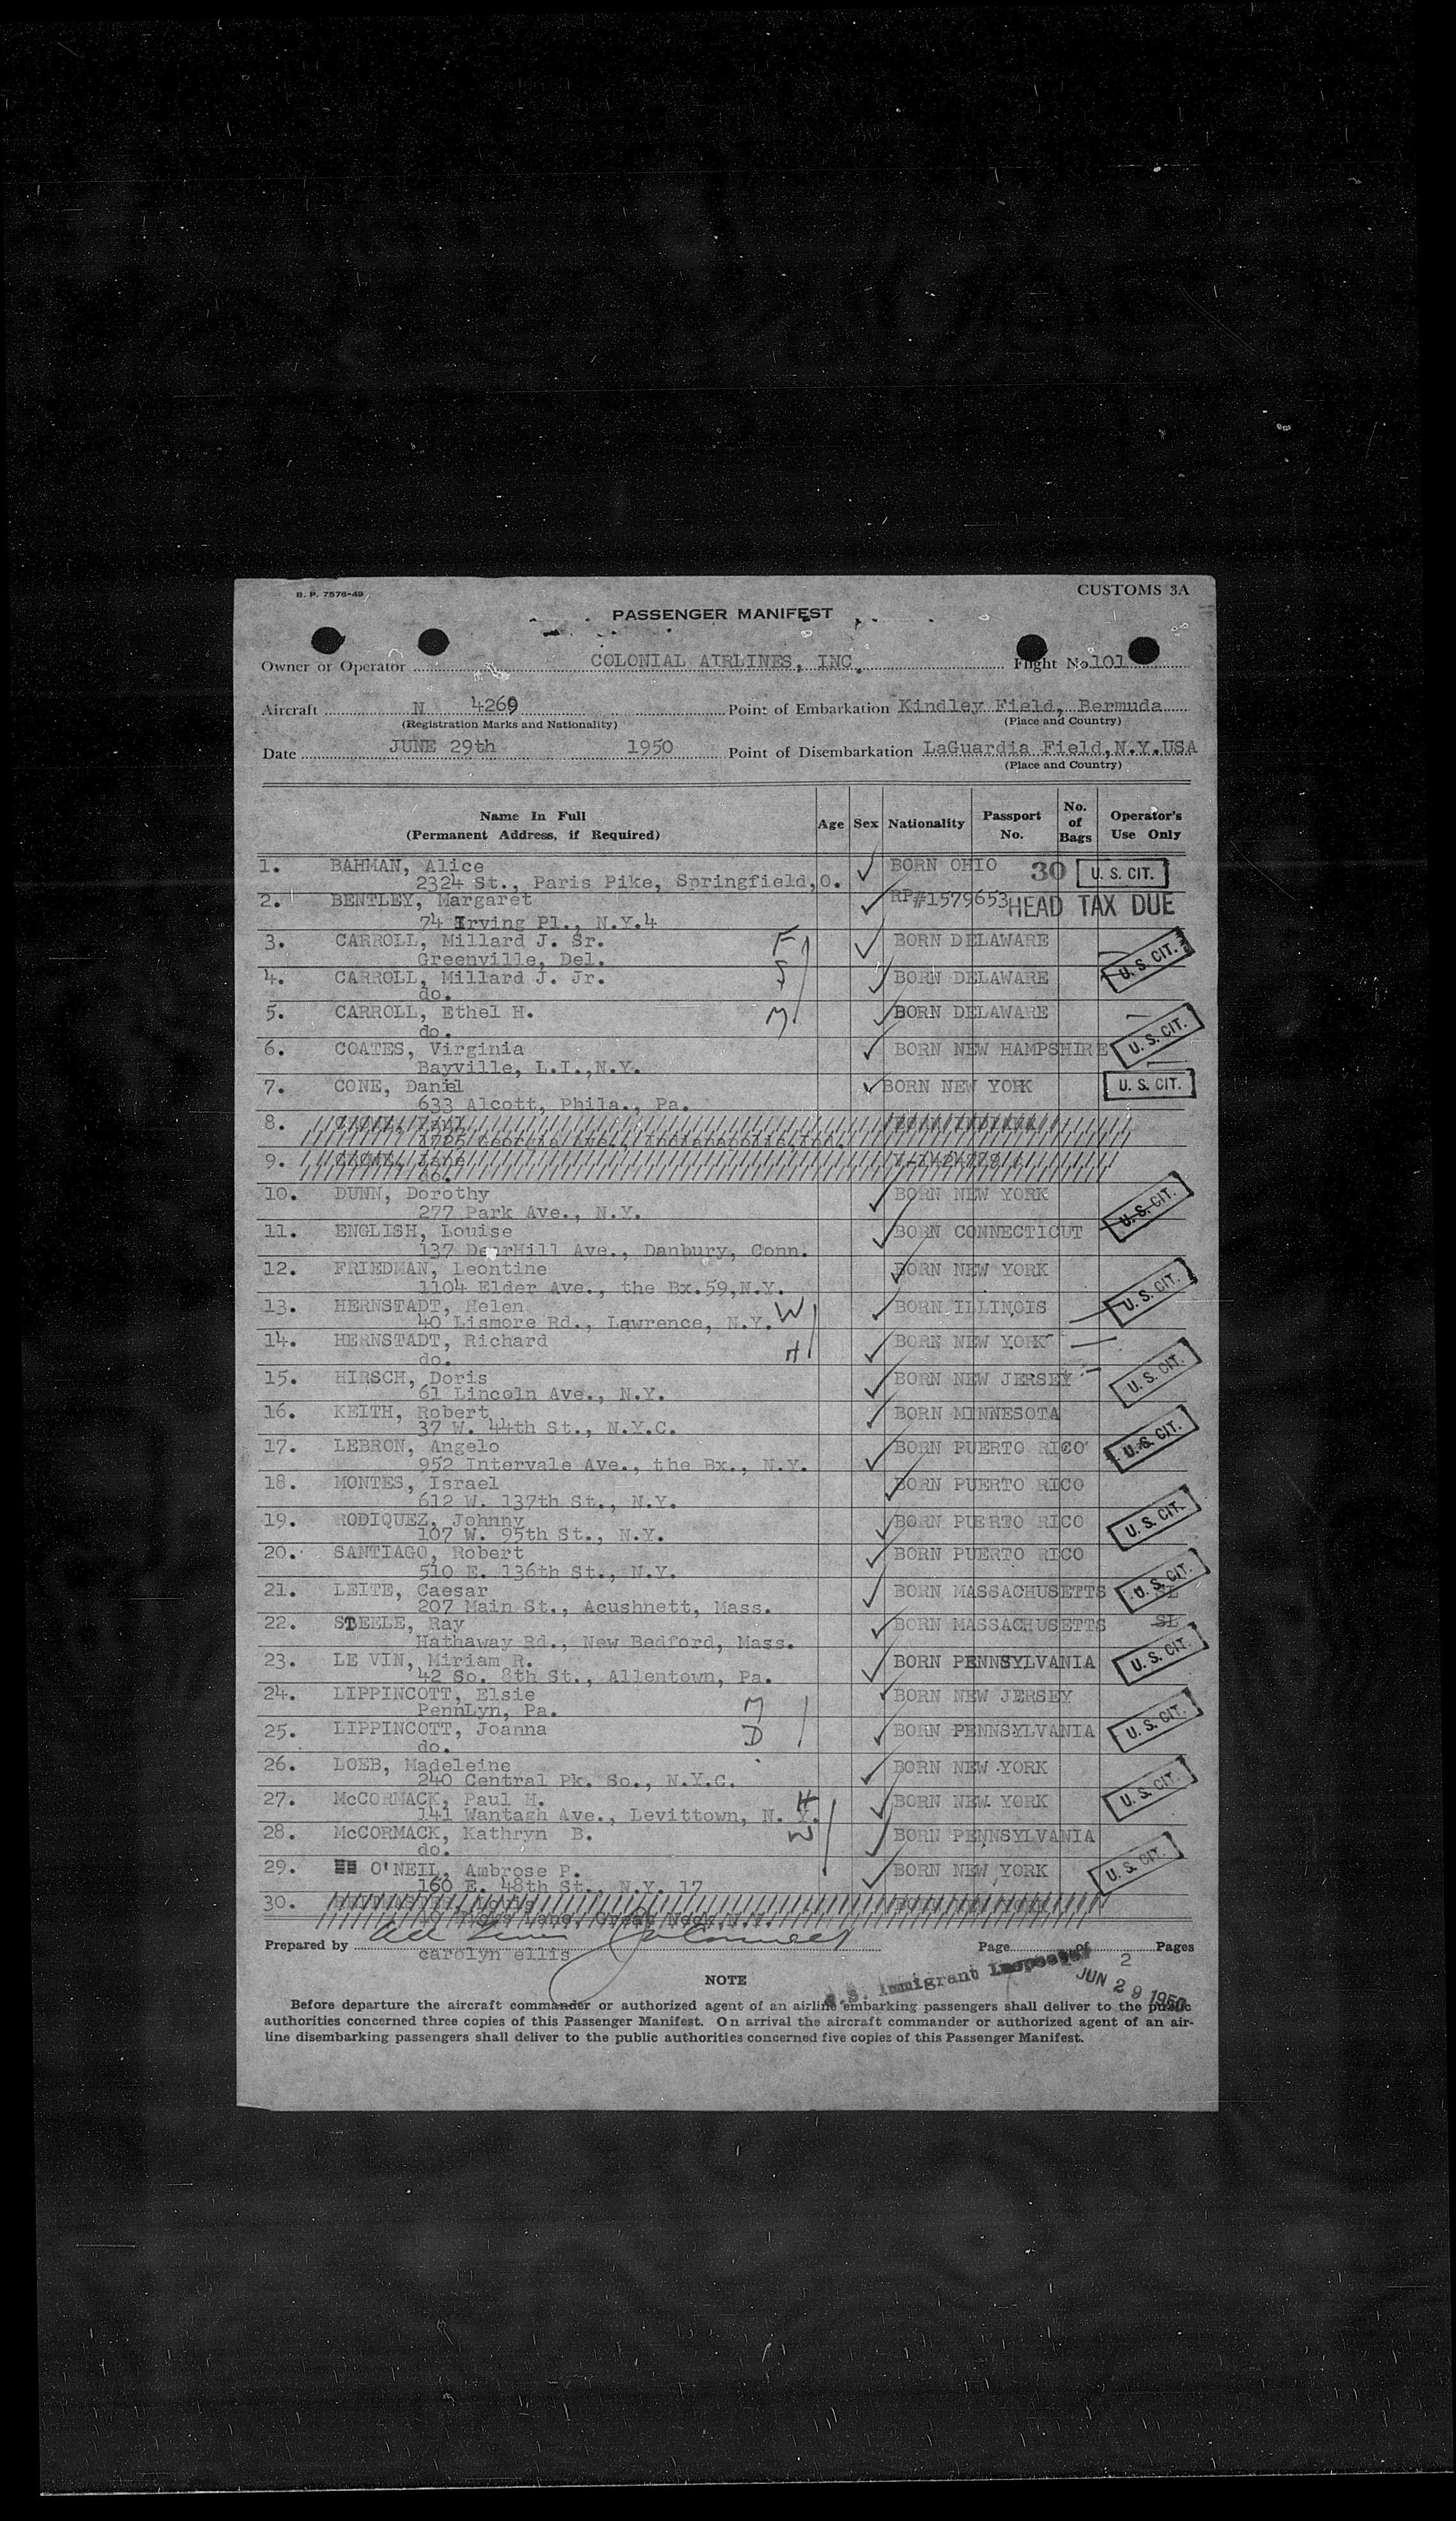 B. P. 7576-49
CUSTOMS 3A
PASSENGER MANIFEST
Owner or Operator COLONIAL AIRLINES, INC. Flight No. 101
Aircraft N 4269 Point of Embarkation Kindley Field, Bermuda
(Registration Marks and Nationality) (Place and Country)
Date JUNE 29th 1950 Point of Disembarkation LaGuardia Field, N.Y. USA
(Place and Country)
Name In Full (Permanent Address, if Required) Age Sex Nationality Passport No. No. of Bags Operator's Use Only
1. BAHMAN, Alice BORN OHIO 30 U. S. CIT.
2324 St., Paris Pike, Springfield, O.
2. BENTLEY, Margaret RP#1579653 HEAD TAX DUE
74 Irving Pl., N.Y.4
3. CARROLL, Millard J. Sr. F BORN DELAWARE U. S. CIT.
Greenville, Del.
4. CARROLL, Millard J. Jr. S BORN DELAWARE
do.
5. CARROLL, Ethel H. M BORN DELAWARE
do. U. S. CIT.
6. COATES, Virginia BORN NEW HAMPSHIRE
Bayville, L.I.,N.Y.
7. CONE, Daniel BORN NEW YORK U. S. CIT.
633 Alcott, Phila., Pa.
8. BORN INDIANA
1725 Georgia Ave., Indianapolis, Ind.
9. Jane
do.
10. DUNN, Dorothy BORN NEW YORK U. S. CIT.
277 Park Ave., N.Y.
11. ENGLISH, Louise BORN CONNECTICUT
137 DeerHill Ave., Danbury, Conn.
12. FRIEDMAN, Leontine BORN NEW YORK
1104 Elder Ave., the Bx.59,N.Y. U. S. CIT.
13. HERNSTADT, Helen W BORN ILLINOIS
40 Lismore Rd., Lawrence, N.Y.
14. HERNSTADT, Richard H BORN NEW YORK
do.
15. HIRSCH, Doris BORN NEW JERSEY U. S. CIT.
61 Lincoln Ave., N.Y.
16. KEITH, Robert BORN MINNESOTA
37 W. 44th St., N.Y.C.
17. LEBRON, Angelo BORN PUERTO RICO U. S. CIT.
952 Intervale Ave., the Bx., N.Y.
18. MONTES, Israel BORN PUERTO RICO
612 W. 137th St., N.Y.
19. RODIQUEZ, Johnny BORN PUERTO RICO U. S. CIT.
107 W. 95th St., N.Y.
20. SANTIAGO, Robert BORN PUERTO RICO
510 E. 136th St., N.Y.
21. LEITE, Caesar BORN MASSACHUSETTS U. S. CIT. SL
207 Main St., Acushnett, Mass.
22. STEELE, Ray BORN MASSACHUSETTS SL
Hathaway Rd., New Bedford, Mass.
23. LE VIN, Miriam R. BORN PENNSYLVANIA U. S. CIT.
42 So. 8th St., Allentown, Pa.
24. LIPPINCOTT, Elsie M BORN NEW JERSEY
PennLyn, Pa.
25. LIPPINCOTT, Joanna D BORN PENNSYLVANIA U. S. CIT.
do.
26. LOEB, Madeleine BORN NEW YORK
240 Central Pk. So., N.Y.C.
27. McCORMACK, Paul H. H BORN NEW YORK U. S. CIT.
141 Wantagh Ave., Levittown, N. Y.
28. McCORMACK, Kathryn B. W BORN PENNSYLVANIA
do.
29. O'NEIL, Ambrose P. BORN NEW YORK U. S. CIT.
160 E. 48th St., N.Y. 17
30. BORN NEW YORK
Lane, Great Neck, N.Y.
Prepared by Page of 2 Pages
carolyn ellis
U.S. Immigrant Inspector
JUN 29 1950
NOTE
Before departure the aircraft commander or authorized agent of an airline embarking passengers shall deliver to the public
authorities concerned three copies of this Passenger Manifest. On arrival the aircraft commander or authorized agent of an air-
line disembarking passengers shall deliver to the public authorities concerned five copies of this Passenger Manifest.